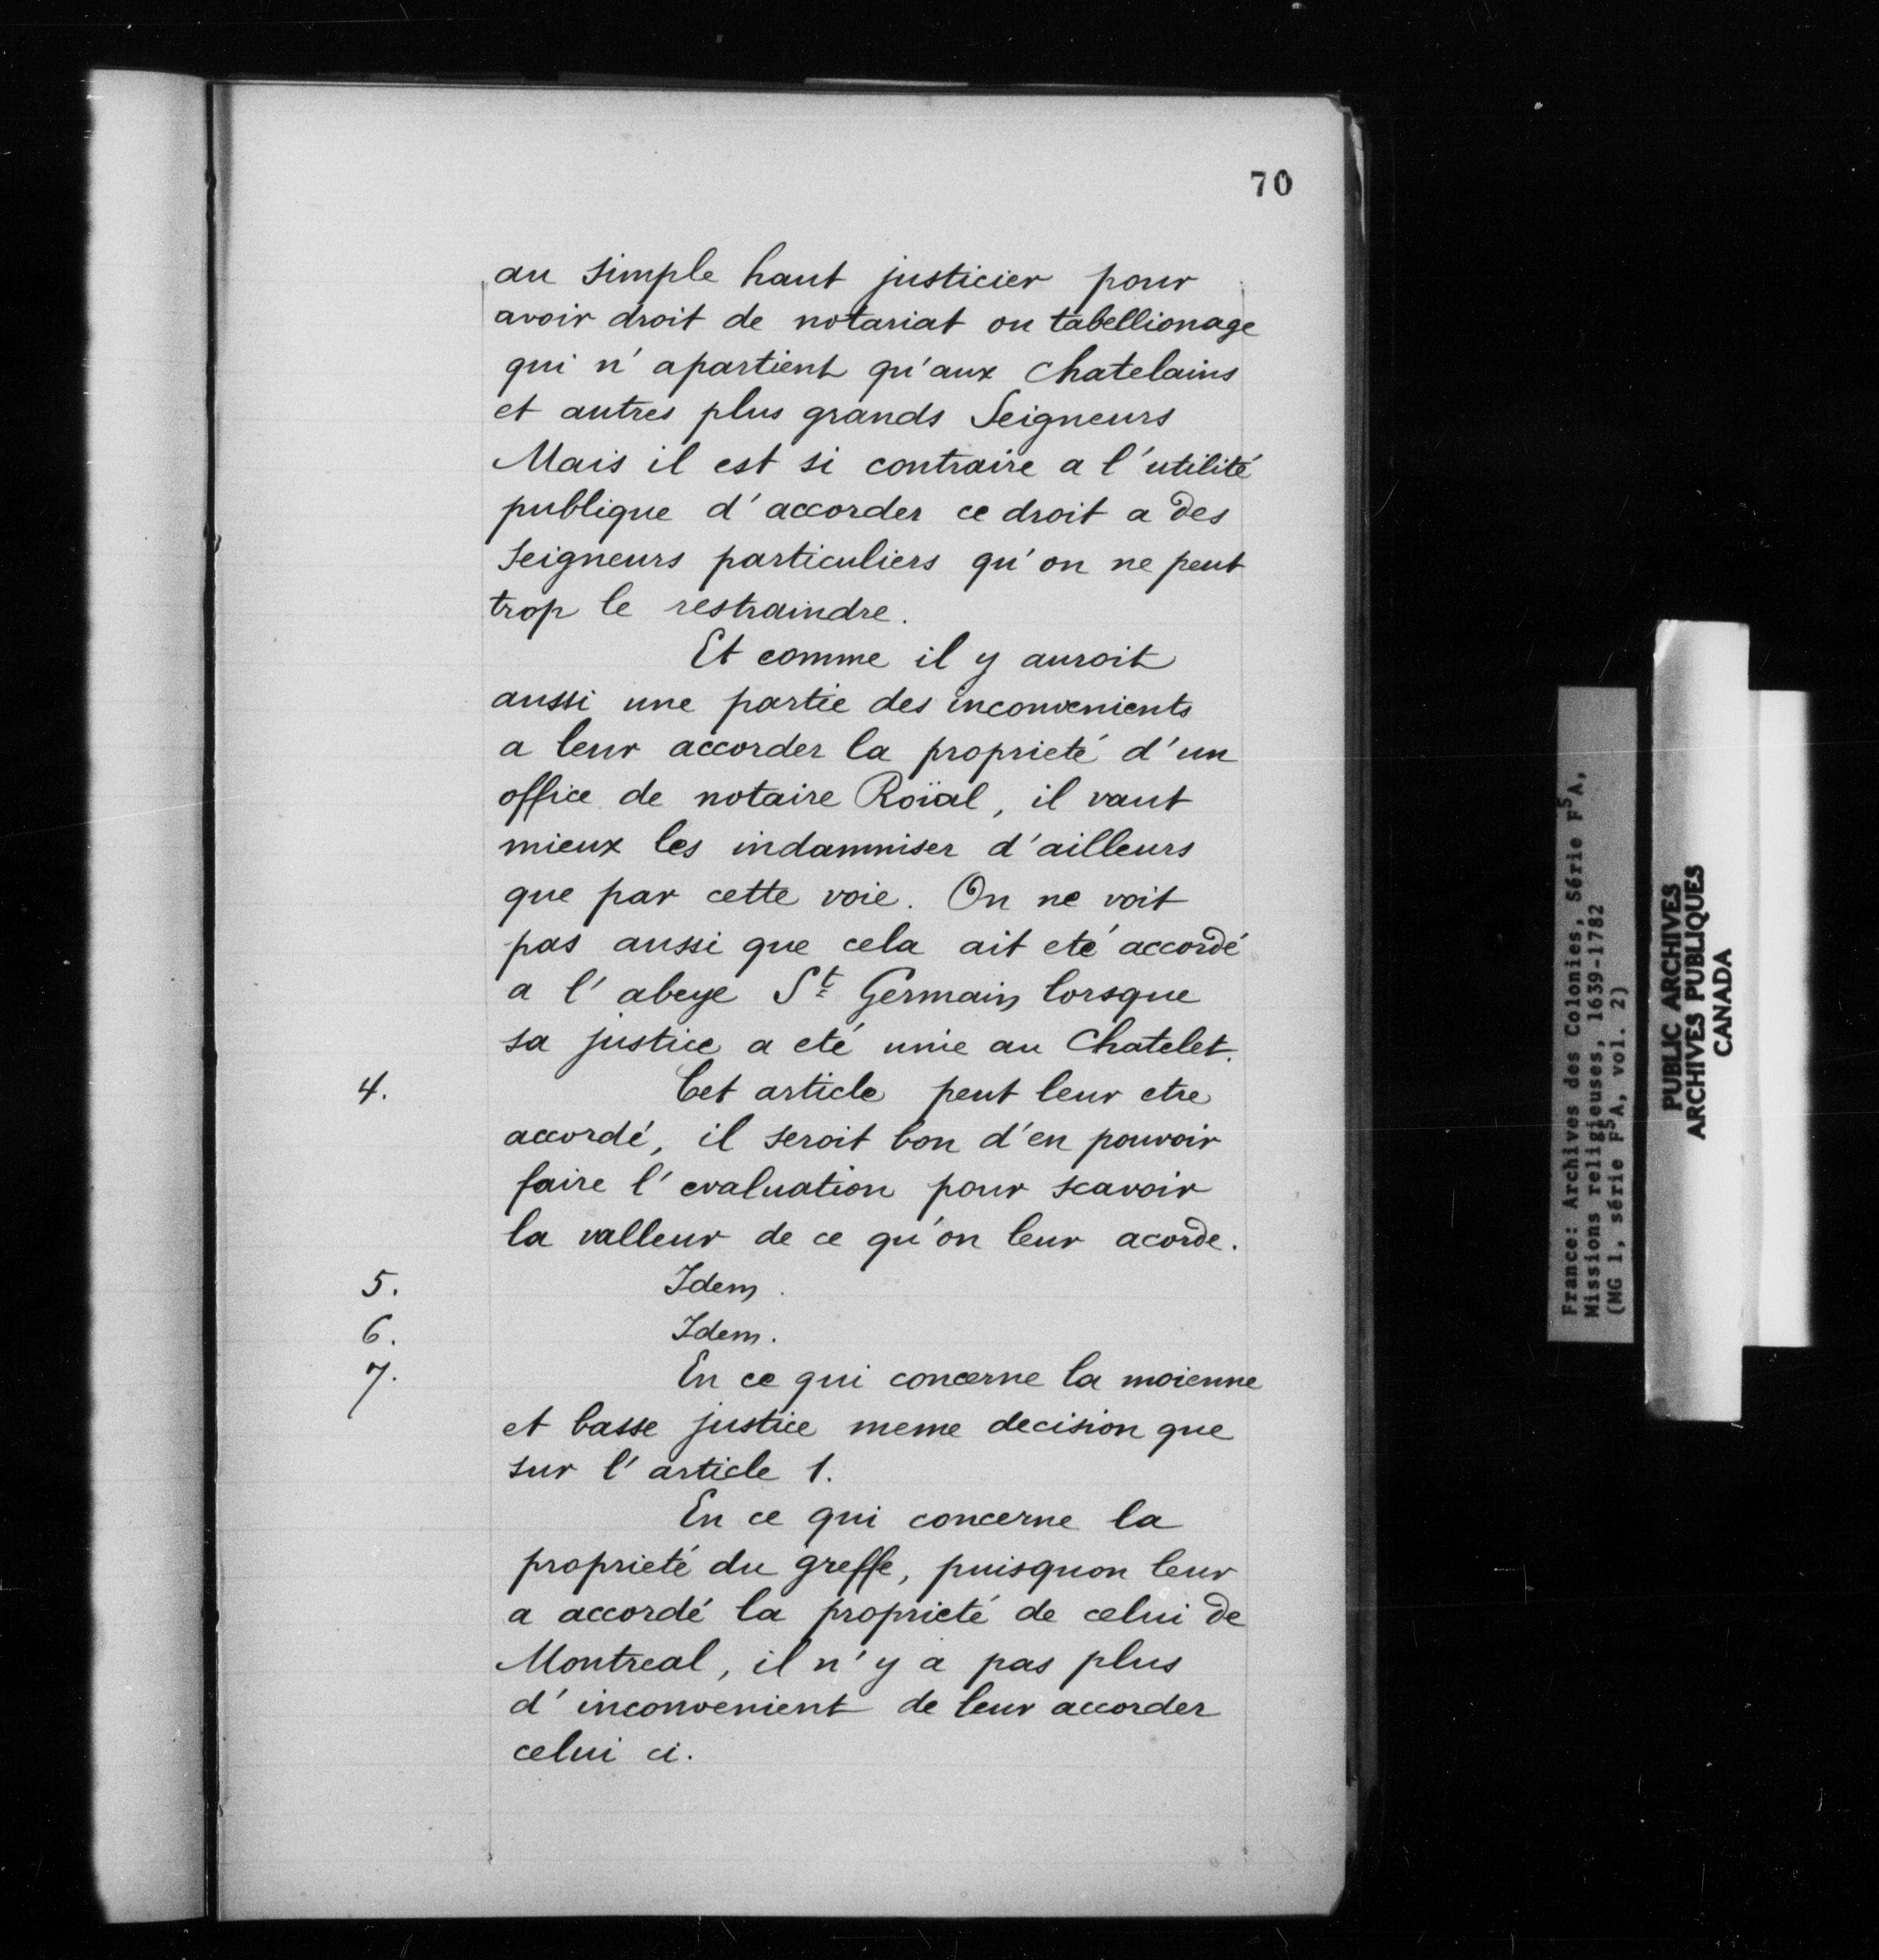 70
au simple haut justicier pour
avoir droit de notariat ou tabellionage
qui n'apartient qu'aux chatelains
et autres plus grands Seigneurs
Mais il est si contraire a l'utilité
publique d'accorder ce droit a des
seigneurs particuliers qu'on ne peut
trop le restraindre.
Et comme il y auroit
aussi une partie des inconvenients
a leur accorder la proprieté d'un
office de notaire Roïal, il vaut
mieux les indamniser d'ailleurs
que par cette voie. On ne voit
pas aussi que cela ait eté accordé
a l'abeye St Germain lorsque
sa justice a eté unie au Chatelet.
4. Cet article peut leur etre
accordé, il seroit bon d'en pouvoir
faire l'evaluation pour scavoir
la valleur de ce qu'on leur acorde.
5. Idem.
6. Idem.
7. En ce qui concerne la moienne
et basse justice meme decision que
sur l'article 1.
En ce qui concerne la
proprieté du greffe, puisquon leur
a accordé la proprieté de celui de
Montreal, il n'y a pas plus
d'inconvenient de leur accorder
celui ci.
France: Archives des Colonies, Série F5A,
Missions religieuses, 1639-1782
(MG 1, série F5A, vol. 2)
PUBLIC ARCHIVES
ARCHIVES PUBLIQUES
CANADA